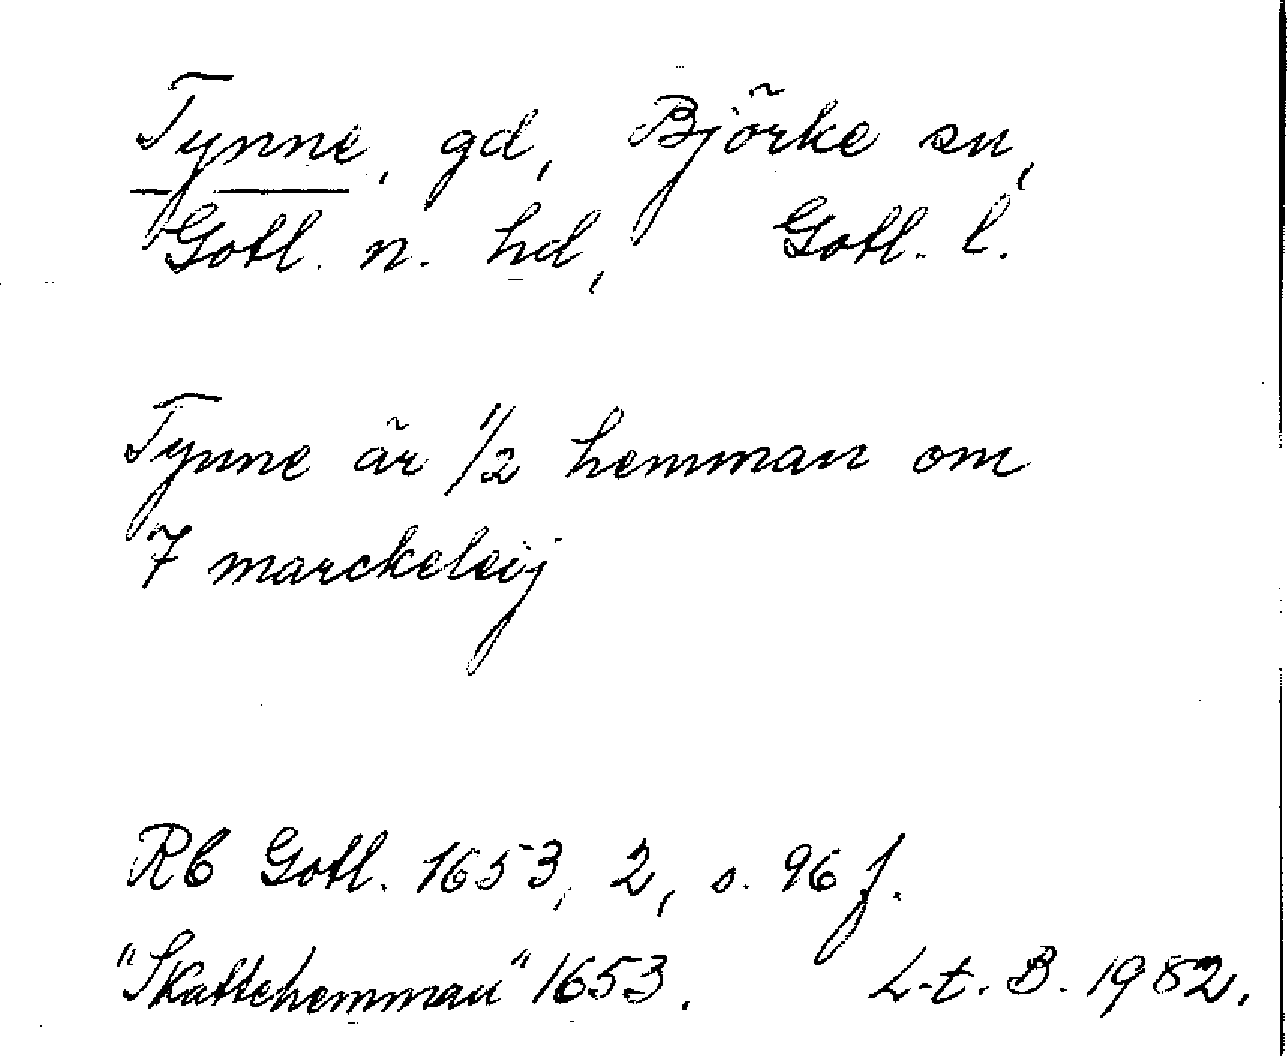 Tynne, gd, Björke sn,
Gotl. n. hd, Gotl. l.
Tynne är 1/2 hemman om
7 marckeleij
Rb Gotl. 1653, 2, s. 96 f.
"Skattehemman" 1653. L-t. B. 1982.